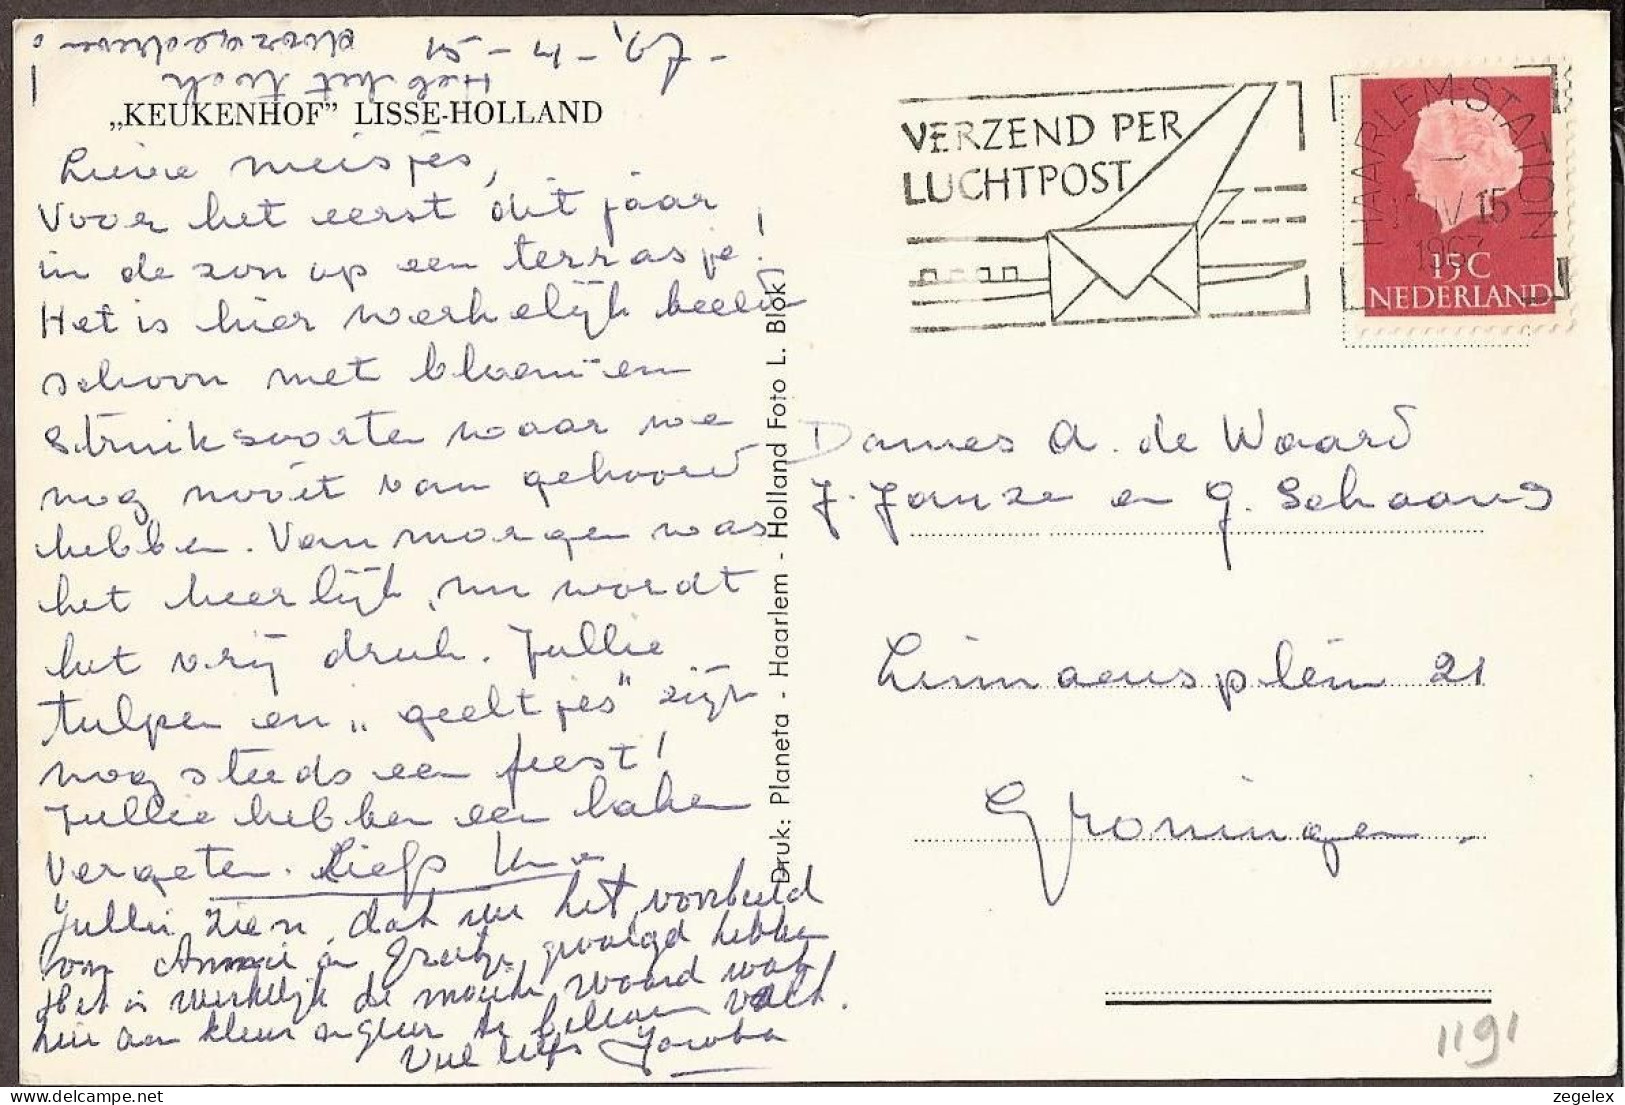 15 - 4 - '67.
Heb het toch
„KEUKENHOF” LISSE-HOLLAND
Lieve meisjes,
Voor het eerst dit jaar
in de zon op een terrasje!
Het is hier werkelijk beeld
schoon met bloemen en
struiksoorten waar we
nog nooit van gehoord
hebben. Van morgen was
het heerlijk, nu wordt
het vrij druk. Jullie
tulpen en „geeltjes" zijn
nog steeds een feest!
Jullie hebben een laken
vergeten. Liefs
Jullie zien, dat we het voorbeeld
van Annie en Greetje gevolgd hebben
Het is werkelijk de moeite waard wat
hier aan kleur en geur te beleven valt.
Veel liefs Jacoba
Druk: Planeta - Haarlem - Holland Foto L. Blok
VERZEND PER
LUCHTPOST
HAARLEM STATION
IV 15
1967
15C
NEDERLAND
Dames A. de Waard
J. Janze en G. Schaans
Linnaeusplein 21
Groningen.
1191
zegelex